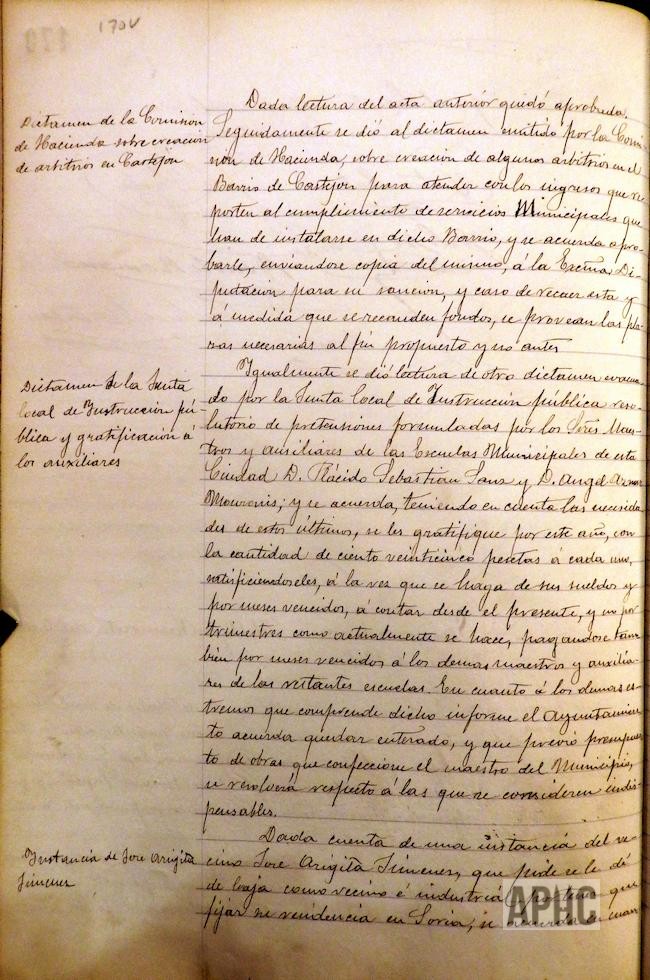 170v
Dictamen de la Comision
de Hacienda sobre creacion
de arbitrios en Castejon
Dada lectura del acta anterior quedó aprobada.
Seguidamente se dió al dictamen emitido por la Comi-
sion de Hacienda, sobre creacion de algunos arbitrios en el
Barrio de Castejon para atender con los ingresos que re-
porten al cumplimiento de servicios Municipales que
han de instalarse en dicho Barrio, y se acuerda apro-
barle, enviandose copia del mismo, á la Excma Di-
putacion para su sancion, y caso de recaer esta y
á medida que se recauden fondos, se provean las pla-
zas necesarias al fin propuesto y no antes
Dictamen de la Junta
local de Instruccion pú-
blica y gratificacion á
los auxiliares
Igualmente se dió lectura de otro dictamen evacua-
do por la Junta local de Instrucción pública reso-
lutorio de pretensiones formuladas por los Sres Maes-
tros y auxiliares de las Escuelas Municipales de esta
Ciudad D. Placido Sebastian Sanz y D. Angel Aznar
y se acuerda, teniendo en cuenta las necesida-
des de estos últimos, se les gratifique por este año, con
la cantidad de ciento veinticinco pesetas á cada uno,
satisficiendoseles, á la vez que se haga de sus sueldos y
por meses vencidos, á contar desde el presente, y no por
trimestres como actualmente se hace, pagandose tam-
bién por meses vencidos á los demas maestros y auxilia-
res de las restantes escuelas. En cuanto á los demas es-
tremos que comprende dicho informe el Ayuntamien-
to acuerda quedar enterado, y que previo presupues-
to de obras que confeccione el maestro del Municipio,
se resolverá respecto á las que se consideren indis-
pensables.
Instancia de Jose Arigita
Jimenez
Dada cuenta de una instancia del ve-
cino Jose Arigita Jimenez, que pide se le dé
de baja como vecino é industrial, que
fijar su residencia en Soria, se acuerda en cuan
APHC